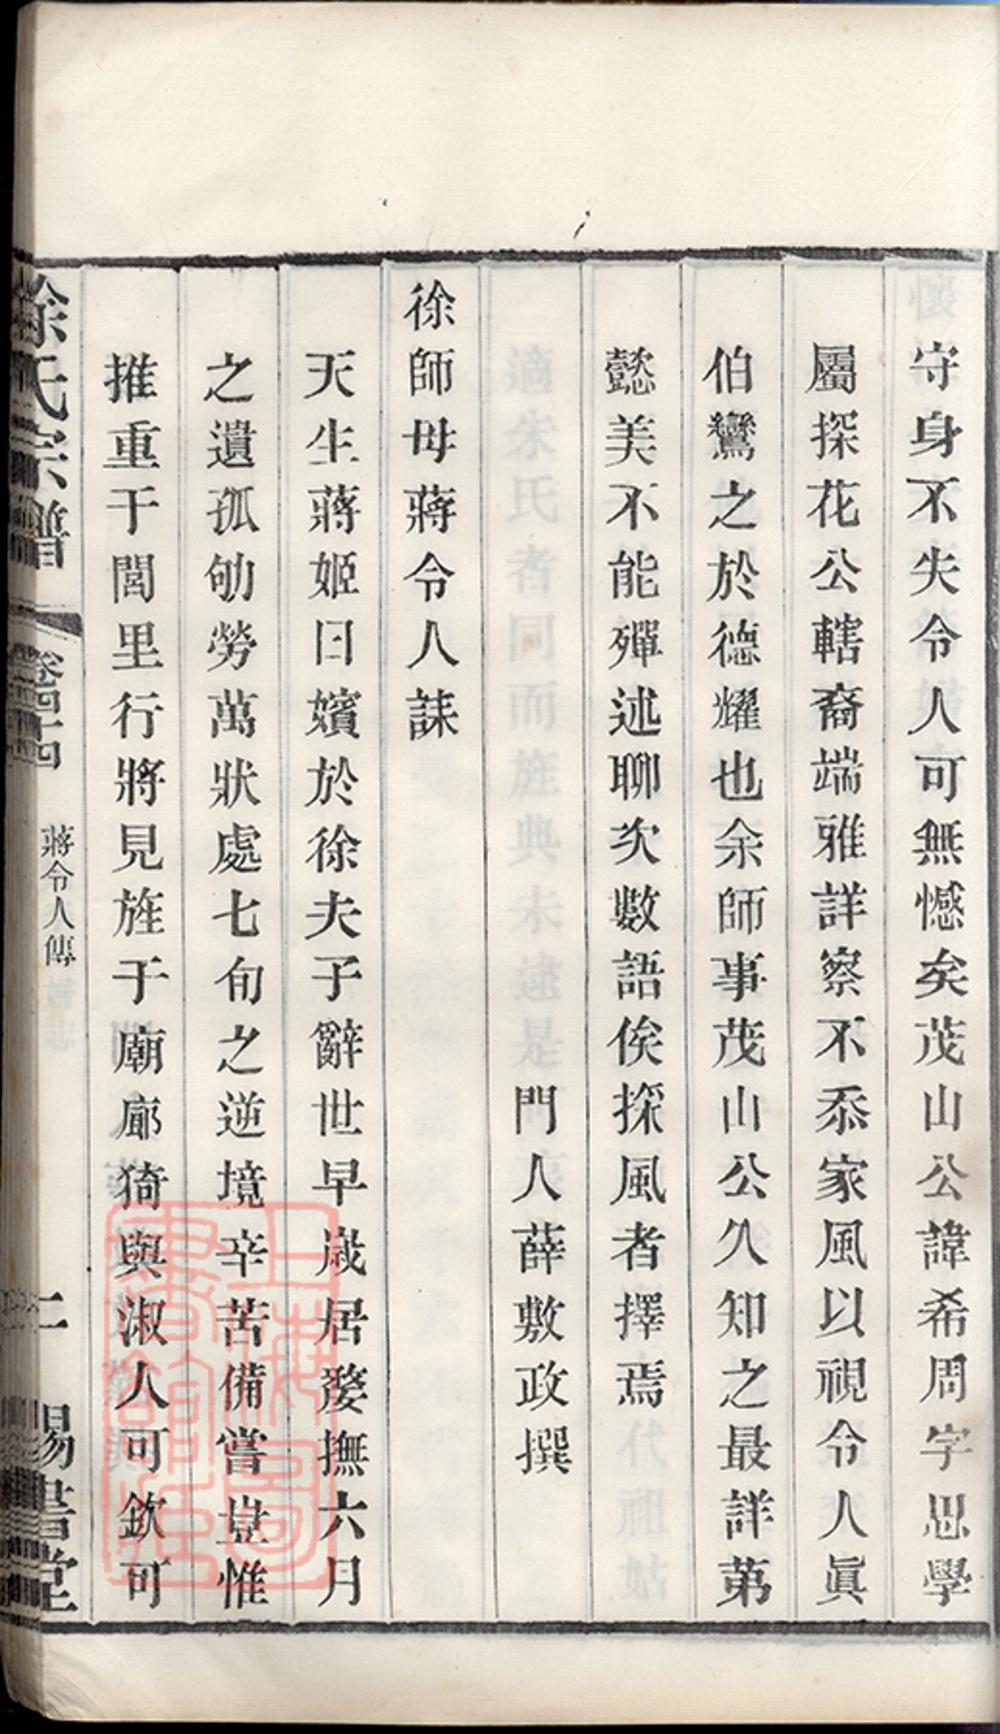 守身不失令人可無憾矣茂山公諱希周字思學
屬探花公轄裔端雅詳察不忝家風以視令人眞
伯鸞之於德耀也余師事茂山公久知之最詳第
懿美不能殫述聊次數語俟採風者擇焉
門人薛敷政撰
徐師母蔣令人誄
天生蔣姬曰嬪於徐夫子辭世早歲居婺撫六月
之遺孤劬勞萬狀處七旬之逆境辛苦備嘗豈惟
推重于閭里行將見旌于廟廊猗與淑人可欽可
徐氏宗譜
卷四十四
蔣令人傳
二
賜書堂
上海圖書館藏